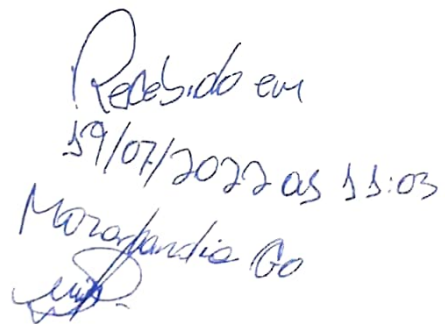 Recebido em
19/07/2022 as 11:03
Mozarlandia Go